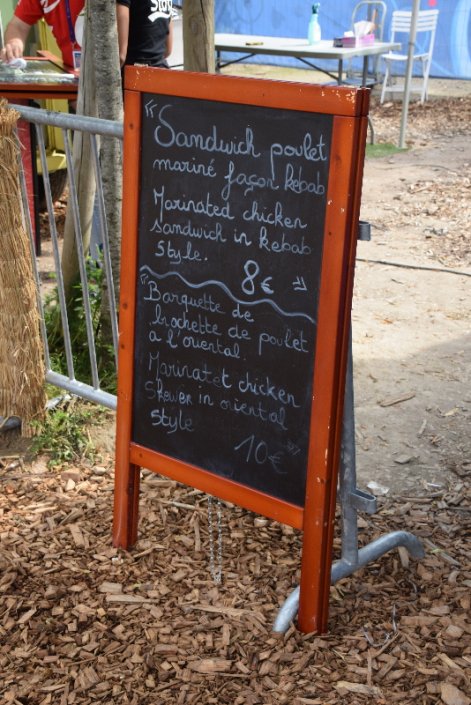 “Sandwich poulet
mariné façon Kebab
Marinated chicken
sandwich in kebab
style.
8€ ”
“Barquette de
brochette de poulet
à l'oriental.
Marinatet chicken
Skewer in oriental
style
10€ ”